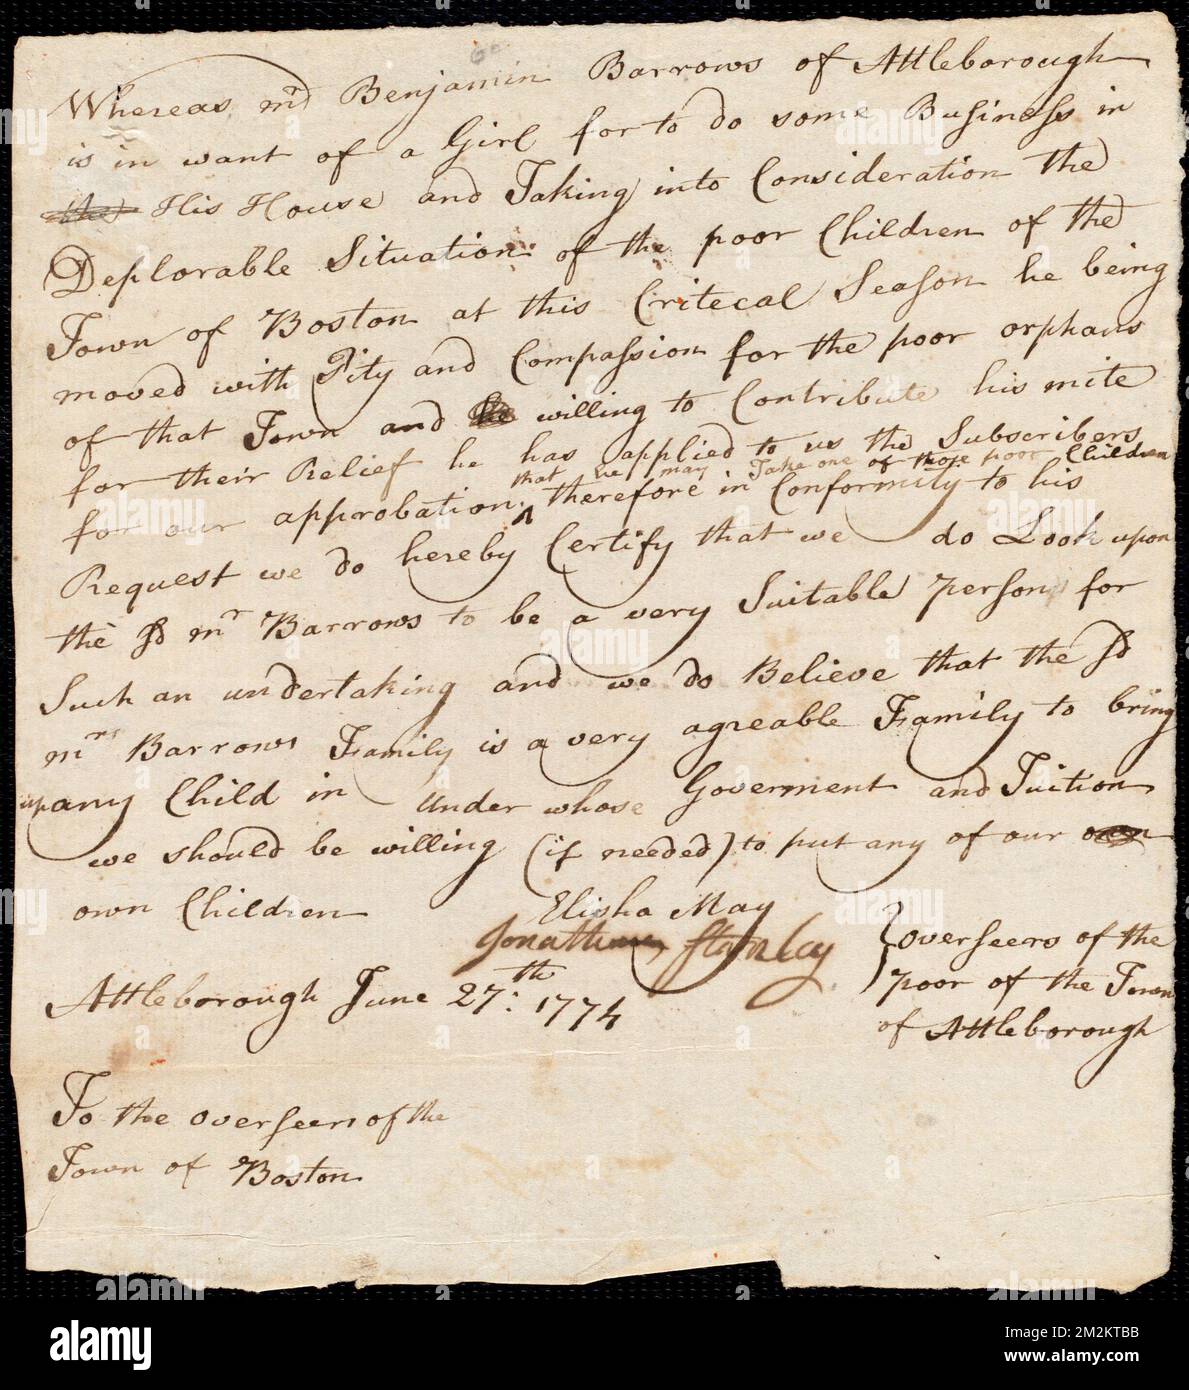 Whereas mr Benjamin Barrows of Attleborough
is in want of a Girl for to do some Business in
the His House and Taking into Consideration the
Deplorable Situation of the poor Children of the
Town of Boston at this Critecal Season he being
moved with Pity and Compassion for the poor orphans
of that Town and he willing to Contribute his mite
for their Relief he has applied to us the Subscribers
that he may Take one of those poor Children
for our approbation ^ therefore in Conformity to his
Request we do hereby Certify that we do Look upon
the sd mr Barrows to be a very Suitable Person for
Such an undertaking and we do Believe that the sd
mrs Barrows Family is a very agreable Family to bring
up any Child in Under whose Goverment and Tuition
we should be willing (if needed) to put any of our own
own Children
Elisha May
Jonathan Stanley
} overseers of the
poor of the Town
of Attleborough
Attleborough June 27:th 1774
To the overseers of the
Town of Boston
alamy
Image ID: 2M2KTBB
www.alamy.com